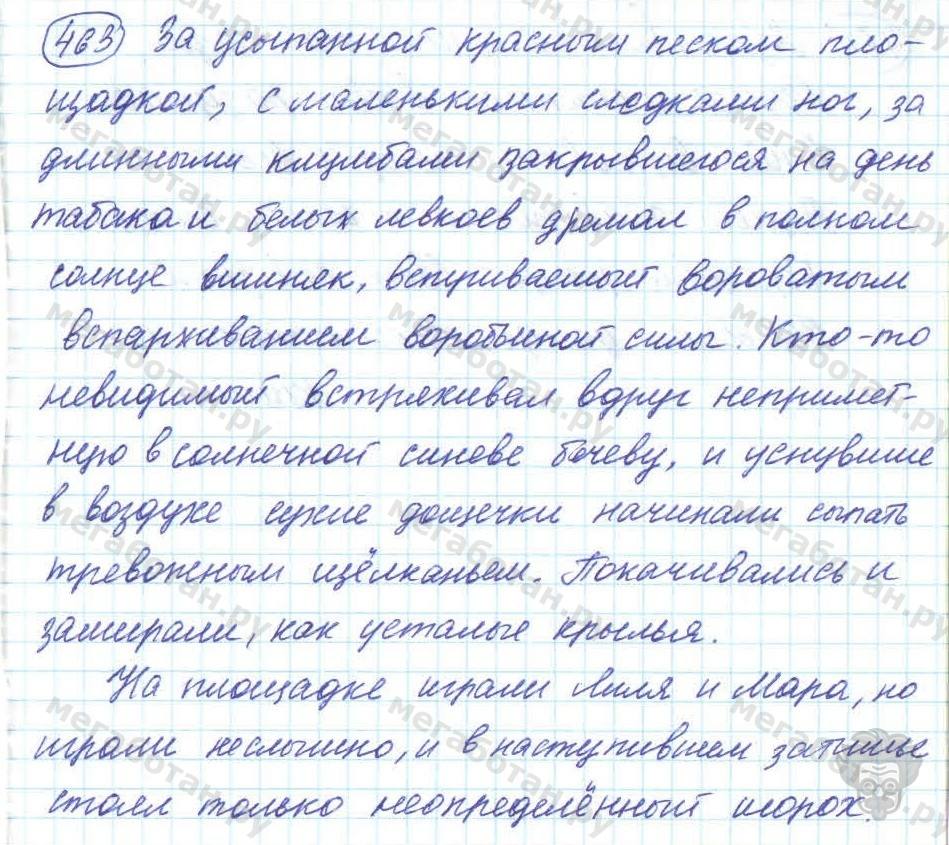 463 За усыпанной красным песком пло-
щадкой, с маленькими следками ног, за
длинными клумбами закрывшегося на день
табака и белых левкоев дремал в полном
солнце вишняк, встриваемый вороватым
вспархиванием воробьиной силы. Кто-то
невидимый встряхивал вдруг непримет-
ную в солнечной синеве бечеву, и уснувшие
в воздухе сухие дощечки начинали сыпать
тревожным щёлканьем. Покачивались и
замирали, как усталые крылья.
На площадке играли Лиля и Мара, но
играли неслышно, и в наступившем затишье
стоял только неопределённый шорох.
мегаботан.ру